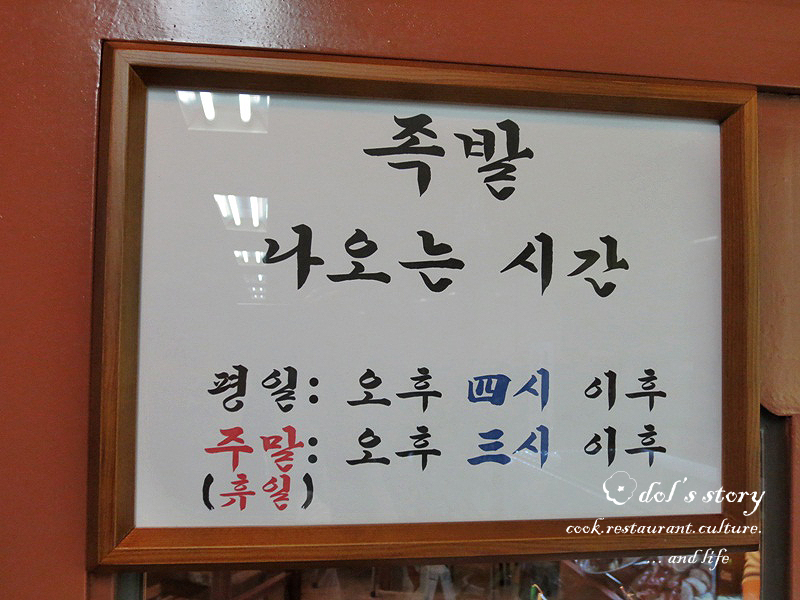 족발
나오는 시간
평일: 오후 四시 이후
주말: 오후 三시 이후
(휴일)
dol's story
cook.restaurant.culture.
... and life